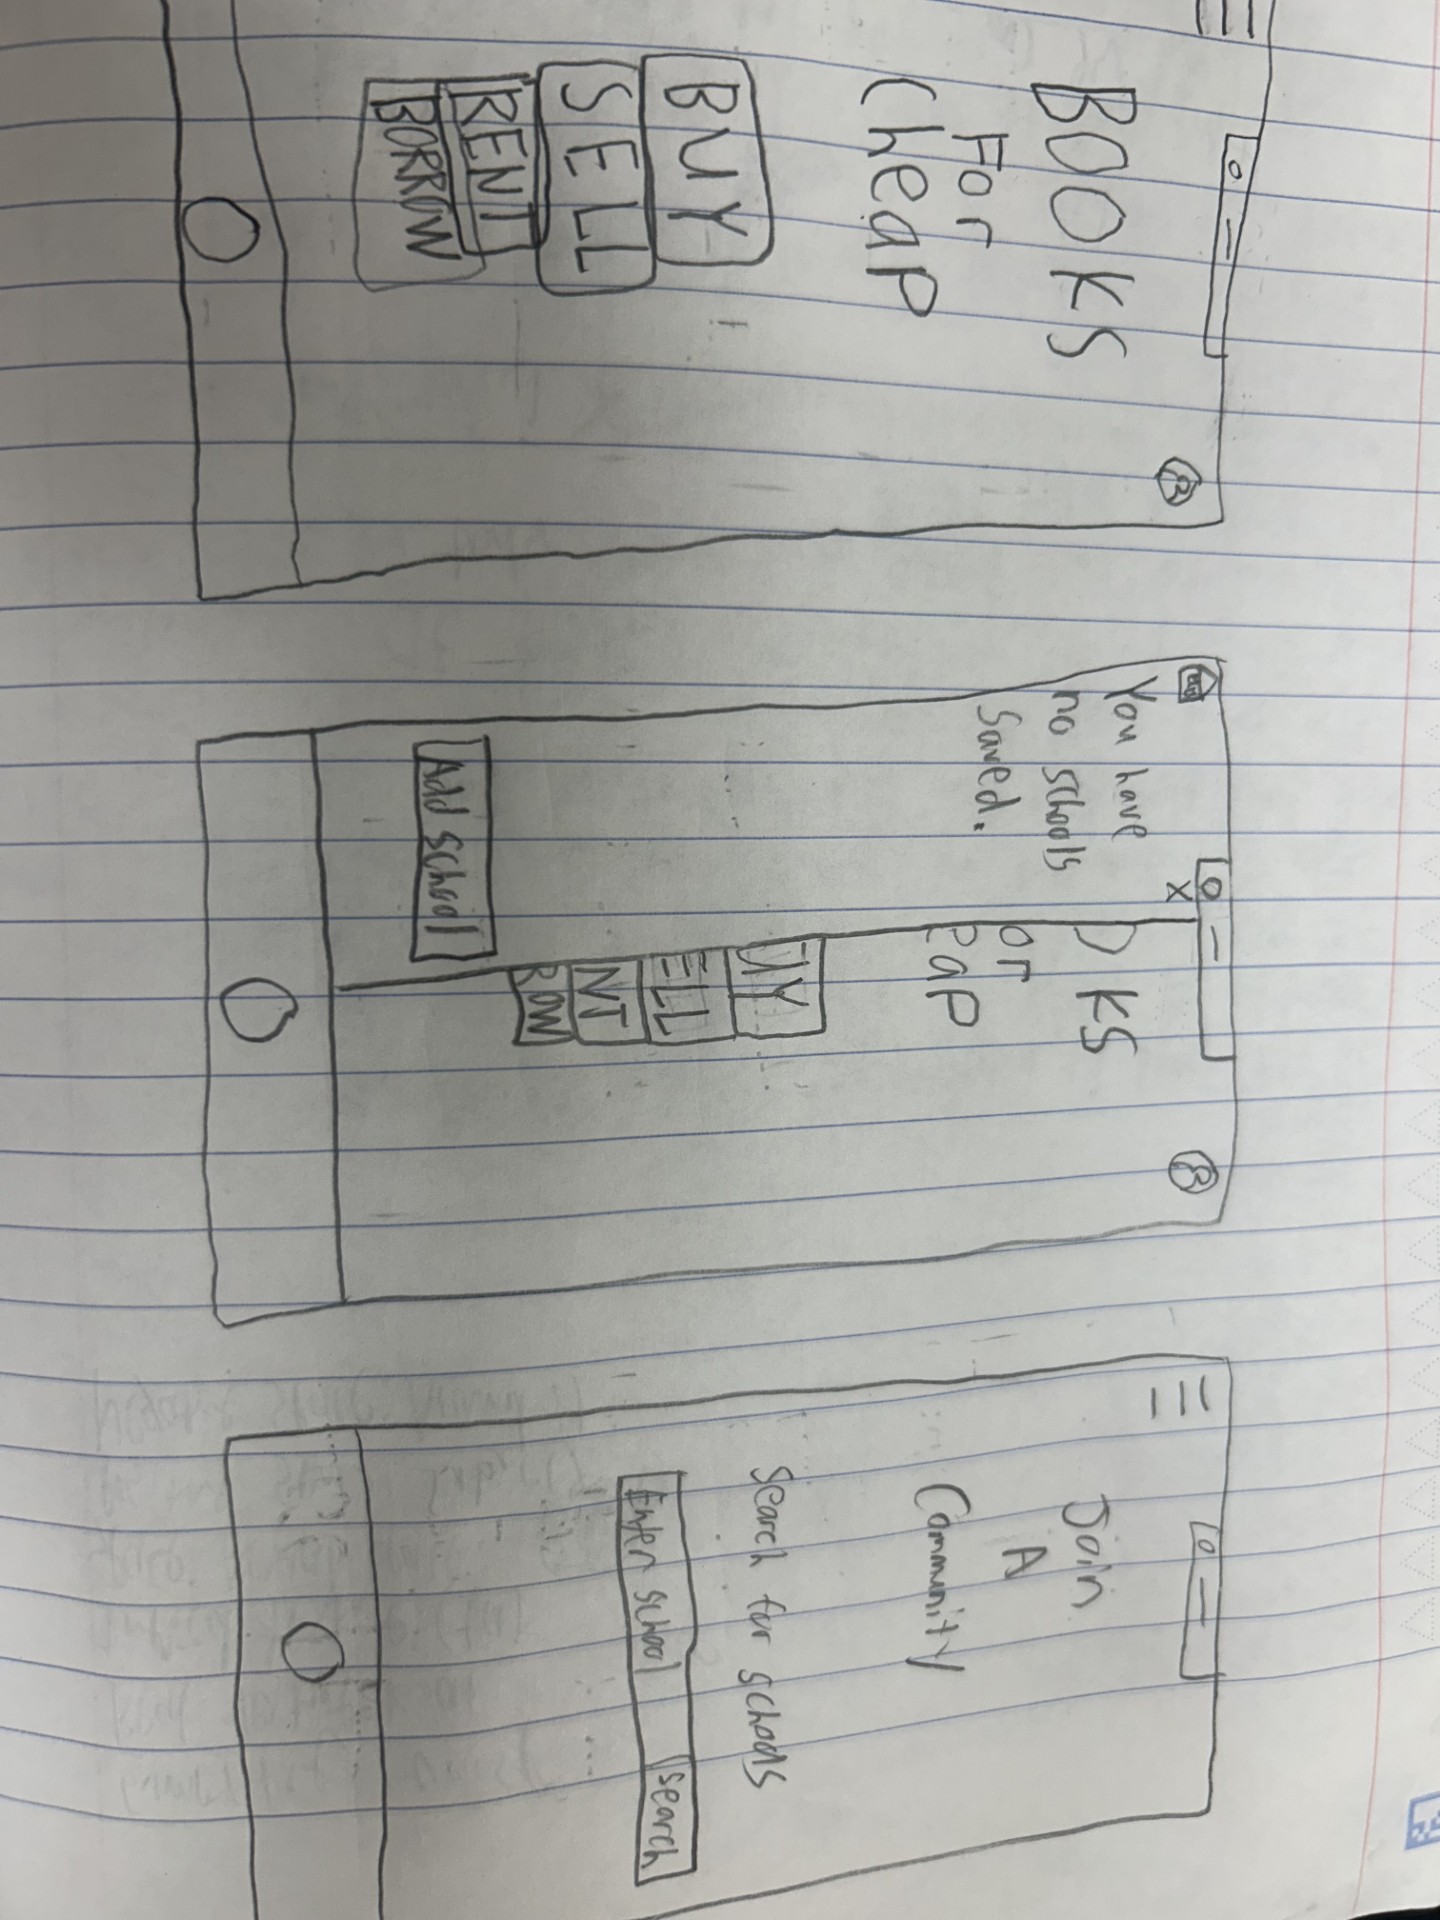 BOOKS
For
Cheap
BUY
SELL
RENT
BORROW
X
You have
no schools
Saved.
OKS
or
eap
UY
ELL
NT
ROW
Add school
Join
A
Community
Search for schools
Enter school
Search